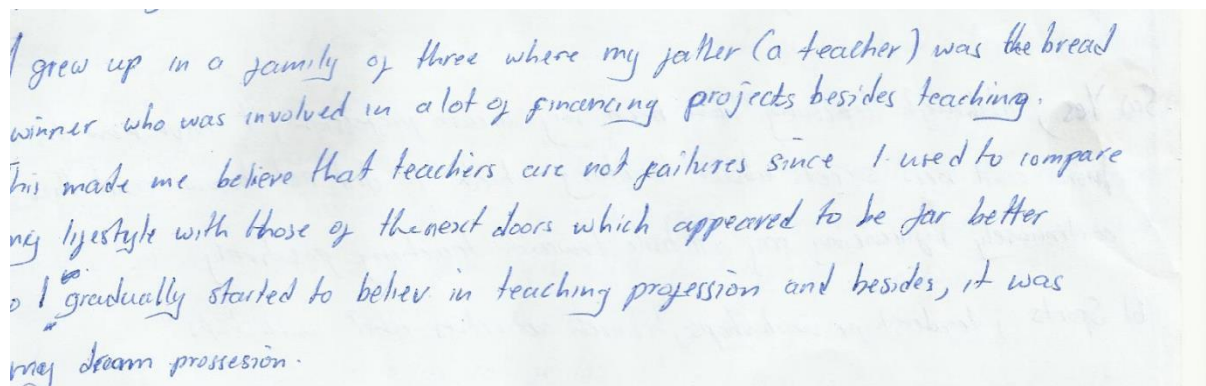 I grew up in a family of three where my father (a teacher) was the bread
winner who was involved in a lot of financing projects besides teaching.
This made me believe that teachers are not failures since I used to compare
my lifestyle with those of the next doors which appeared to be far better
so I gradually started to believ in teaching profession and besides, it was
my dream prossesion.